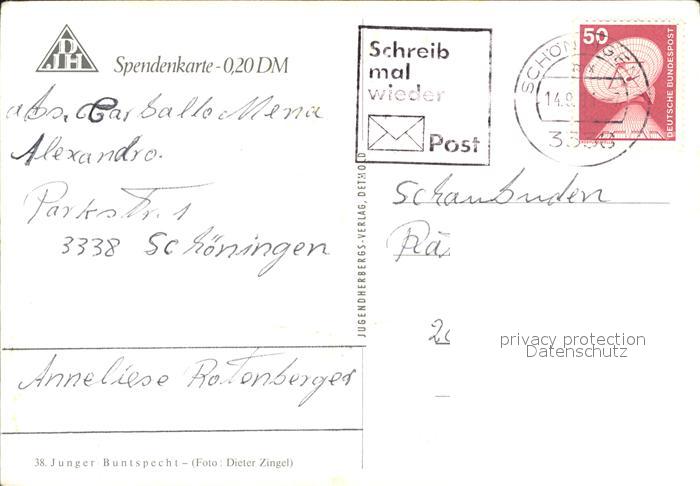 DJH
Spendenkarte - 0,20 DM
abs. Carballo Mena
Alexandro.
Parkstr. 1
3338 Schöningen
Anneliese Rotenberger
38. Junger Buntspecht – (Foto: Dieter Zingel)
JUGENDHERBERGS-VERLAG, DETMOLD
Schreib
mal
wieder
Post
SCHÖNINGEN
14.9.
3338
50
DEUTSCHE BUNDESPOST
Schaubuden
privacy protection
Datenschutz